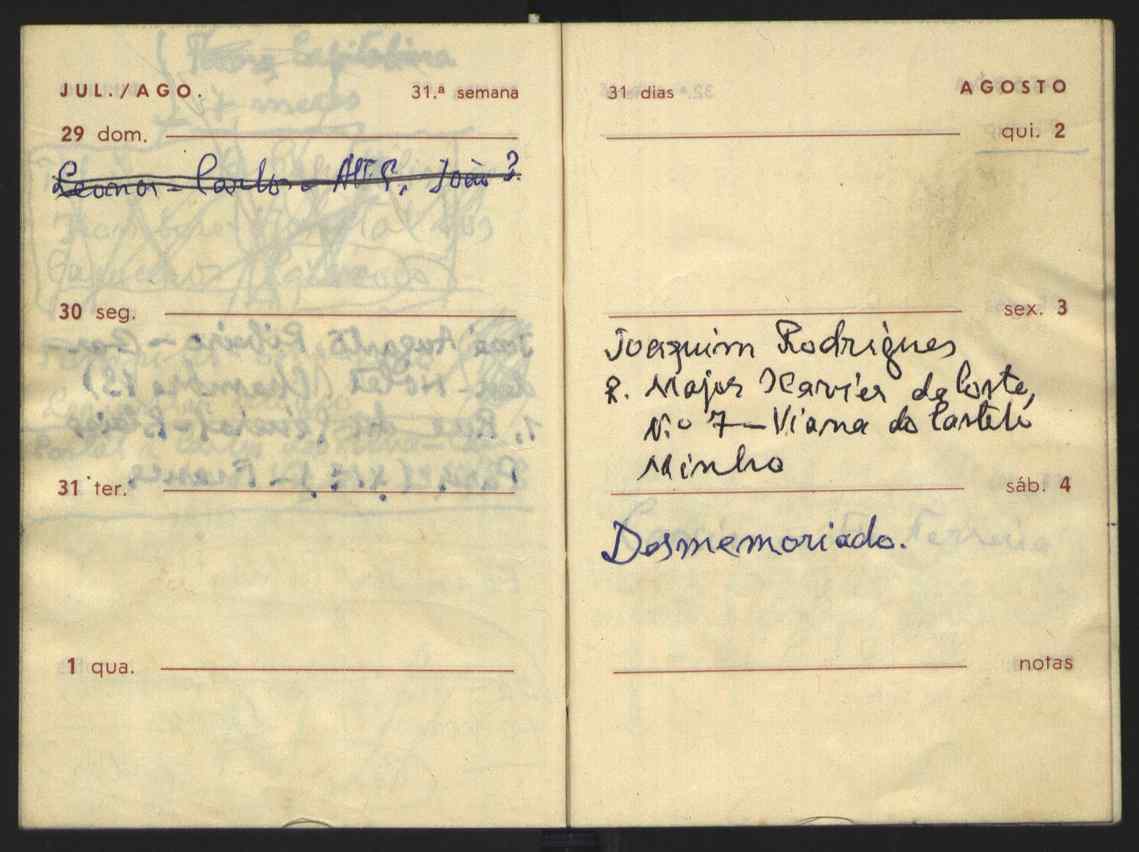 JUL./AGO. 31.ª semana
29 dom.
Leonor - Carlos - João?
30 seg.
31 ter.
1 qua.
31 dias AGOSTO
qui. 2
sex. 3
Joaquim Rodrigues
R. Major Xavier da Costa,
N.º 7 - Viana do Castelo
Minho
sáb. 4
Desmemoriado.
notas